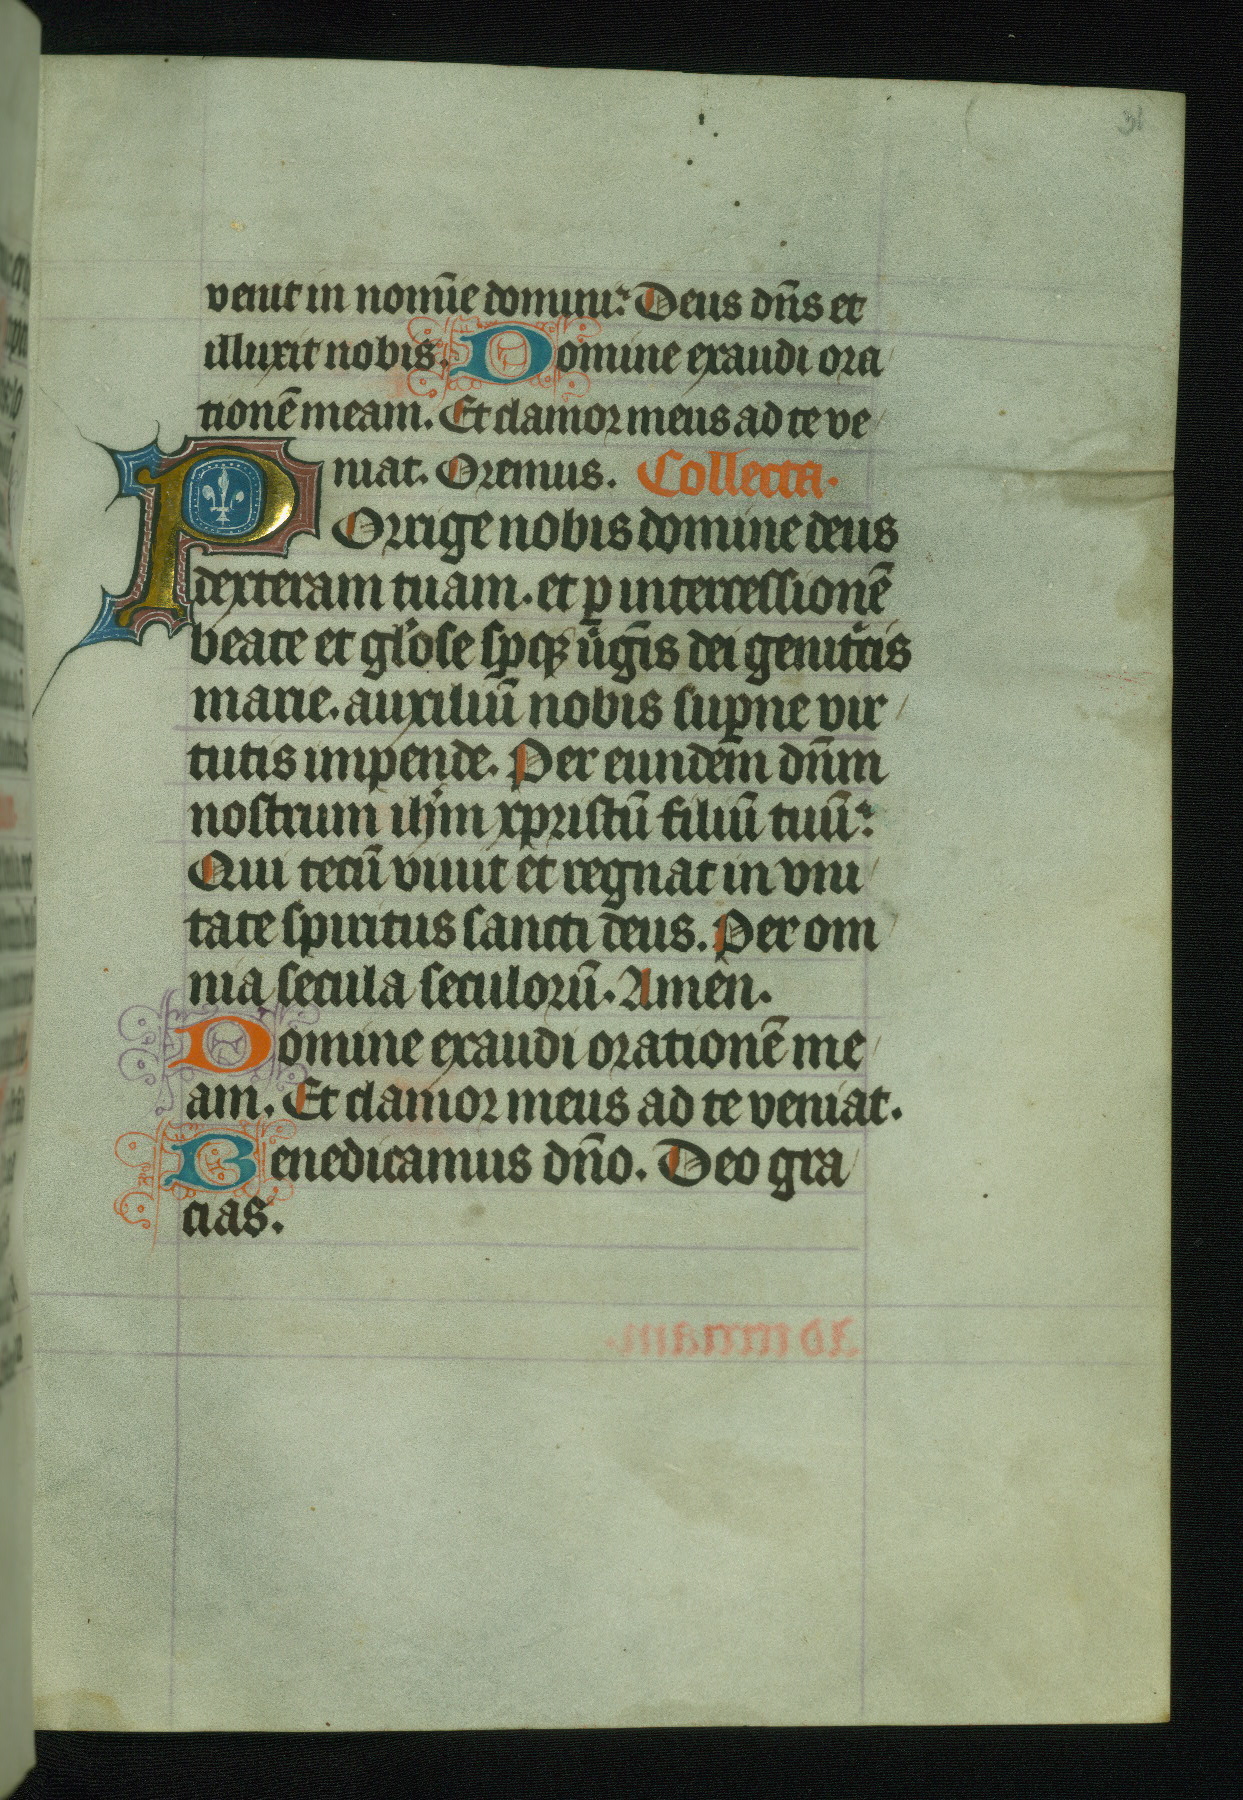 31
venit in nomīe domini: Deus dn̄s et
illuxit nobis. Domine exaudi ora
tionē meam. Et clamor meus ad te ve
niat. Oremus. Collecta.
POrrige nobis domine deus
dexteram tuam. et ꝑ intercessionē
beate et gl'ose sꝑqꝫ v̄gīs dei genitͥcis
marie. auxiliū nobis suꝑne vir
tutis impende. Per eundem dn̄m
nostrum ih̄m xpristū filiū tuū:
Qui tecū viuit et regnat in vni
tate spiritus sancti deus. Per om
nia secula seculorū. Amen.
Domine exaudi orationē me
am. Et clamor meus ad te veniat.
Benedicamus dn̄o. Deo gra
cias.